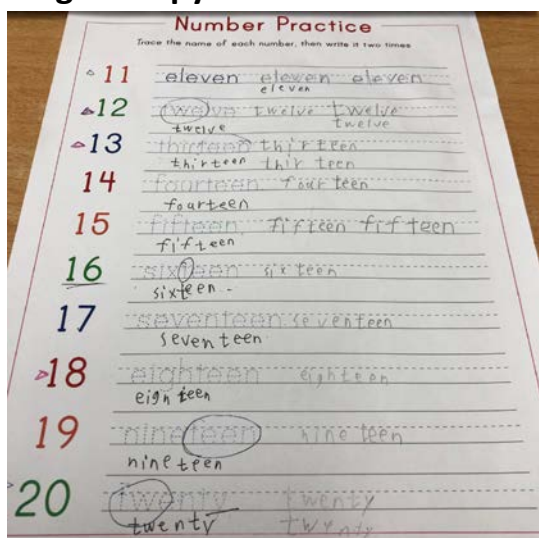 Number Practice
Trace the name of each number, then write it two times
11 eleven eleven eleven
eleven
12 twelve twelve twelve
twelve twelve
13 thirteen thirteen
thirteen thir teen
14 fourteen four teen
fourteen
15 fifteen fifteen fif teen
fifteen
16 sixteen six teen
sixteen
17 seventeen seventeen
seven teen
18 eighteen eighteen
eigh teen
19 nineteen nine teen
nine teen
20 twenty twenty
twenty twynty